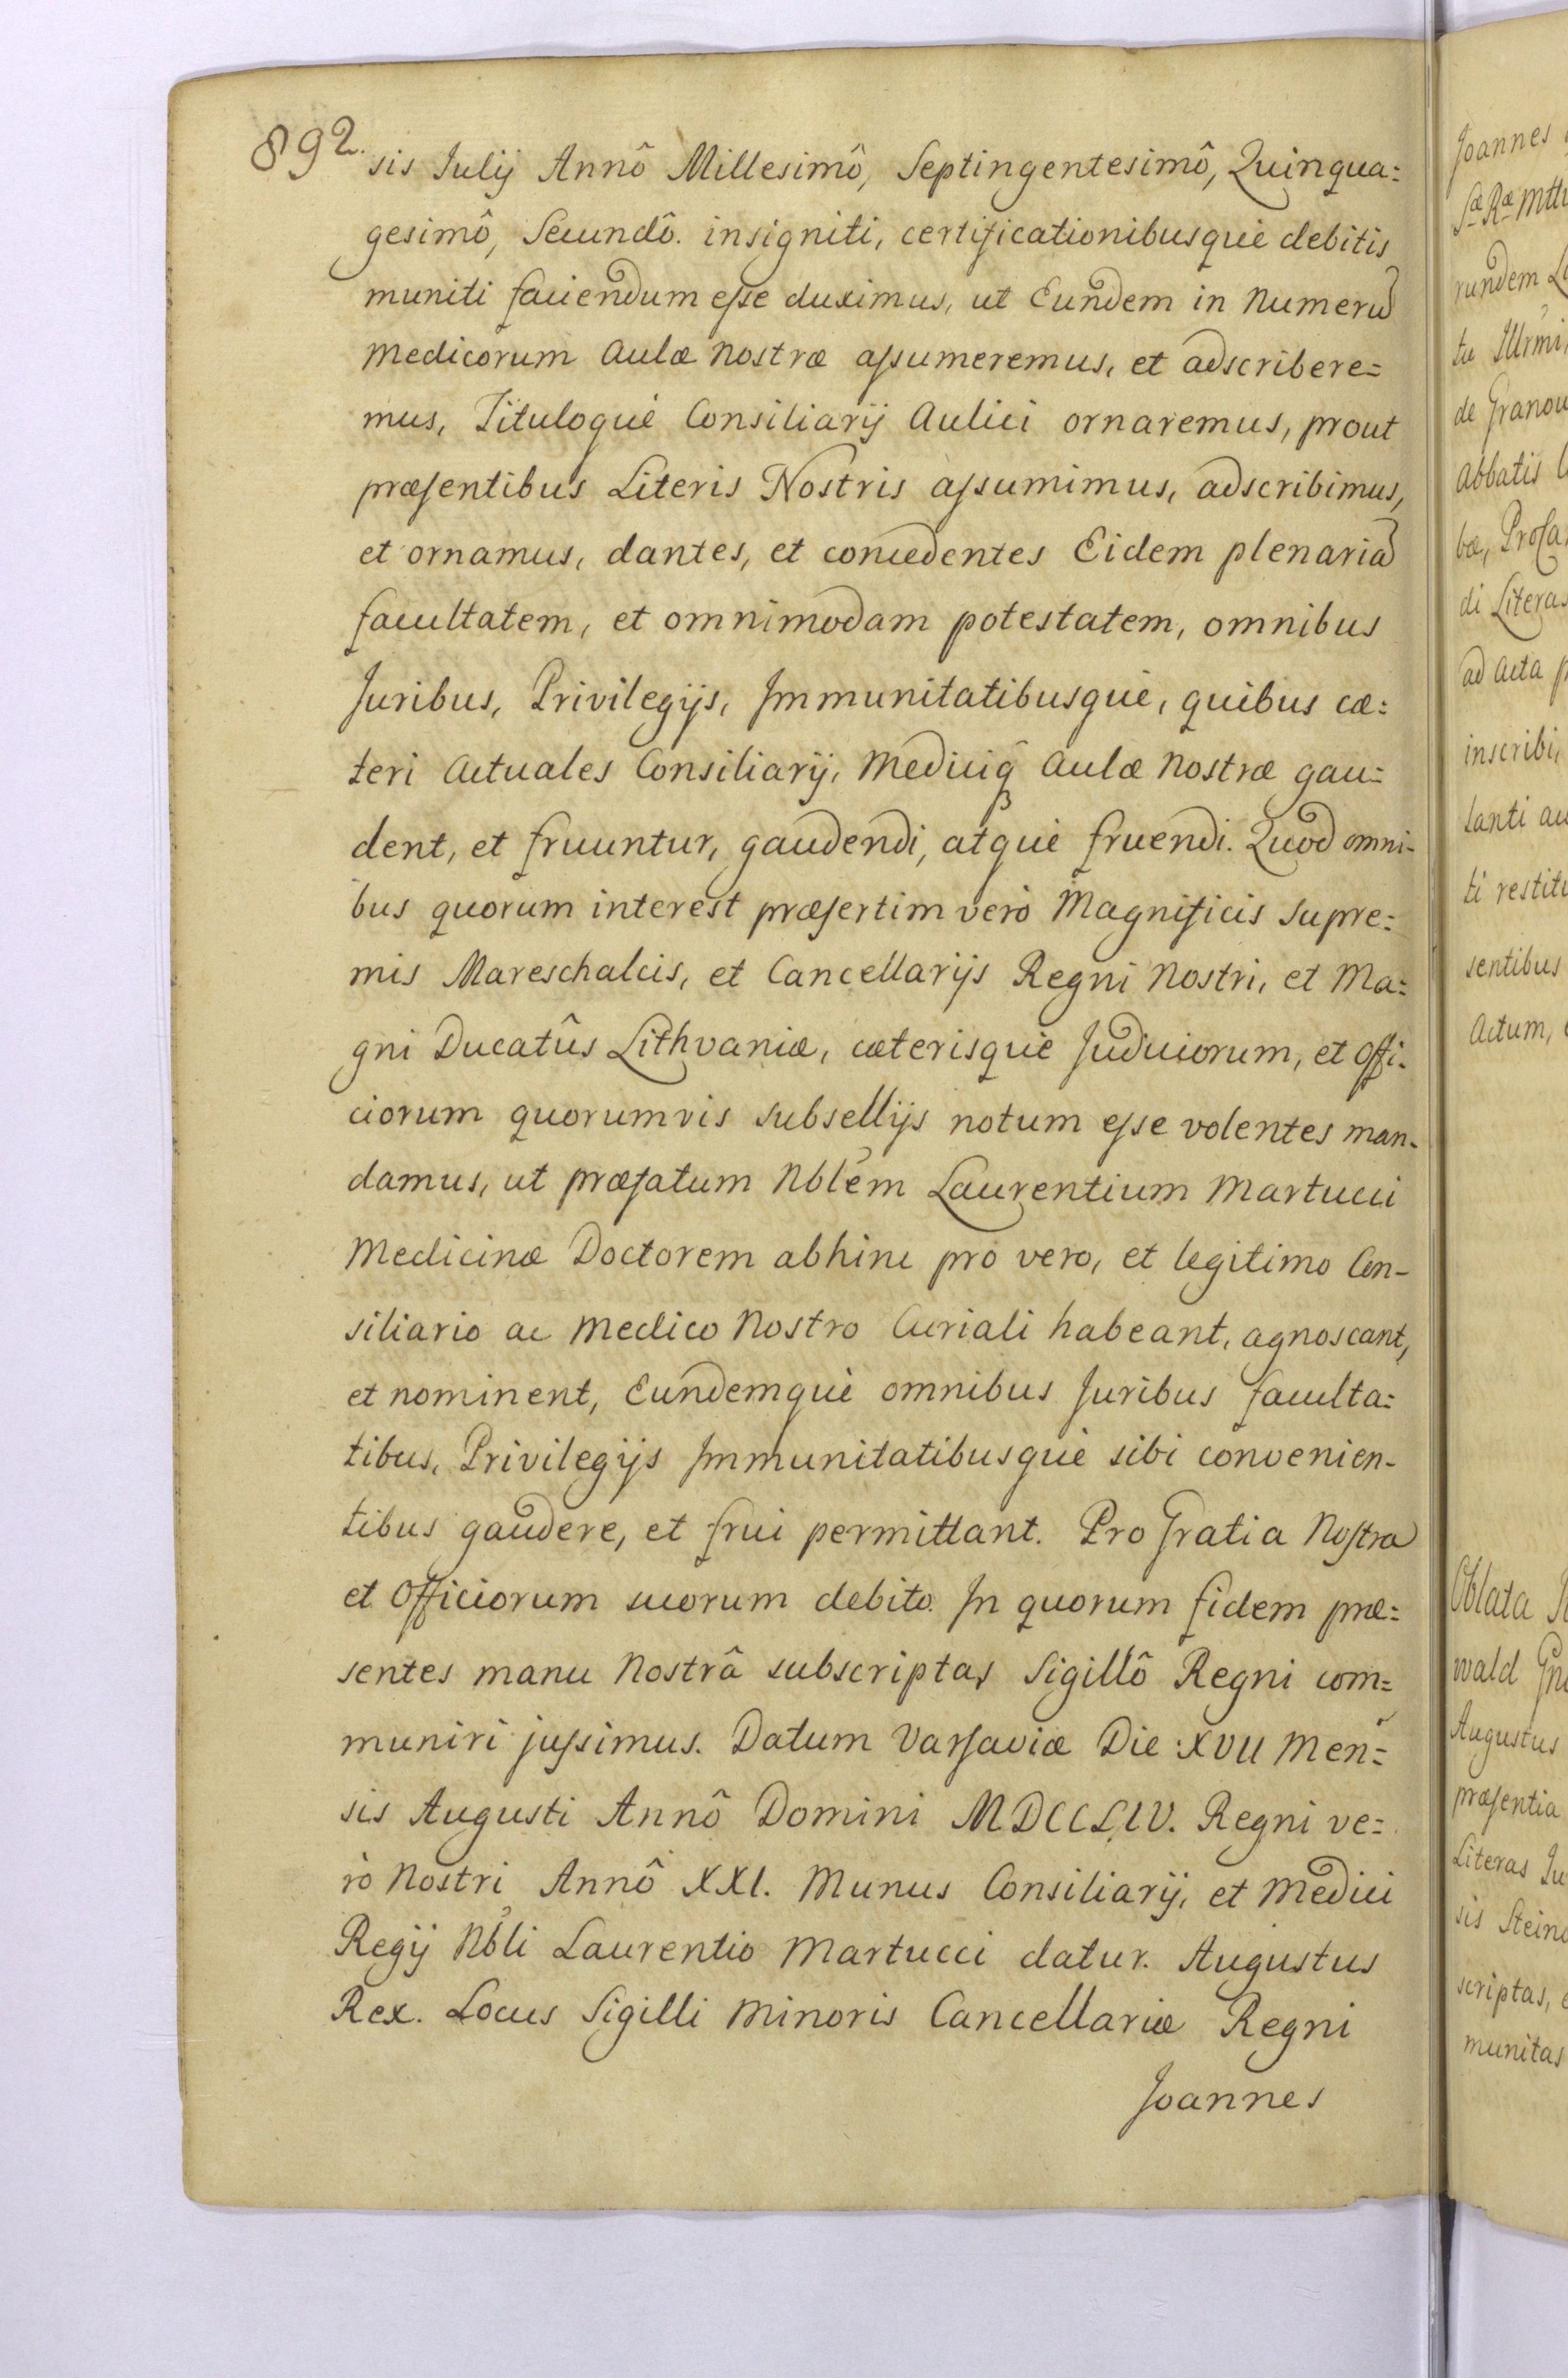 892.
sis Julij Annô Millesimô, Septingentesimô, Quinqua=
gesimô, Secundô. insigniti, certificationibusque debitis
muniti faciendum esse duximus, ut Eundem in Numerū
Medicorum Aulæ Nostræ assumeremus, et adscribere=
mus, Tituloque Consiliarij Aulici ornaremus, prout
præsentibus Literis Nostris assumimus, adscribimus,
et ornamus, dantes, et concedentes Eidem plenariā
facultatem, et omnimodam potestatem, omnibus
Juribus, Privilegijs, Immunitatibusque, quibus cæ=
teri Actuales Consiliarij, Mediciq̃ Aulæ Nostræ gau=
dent, et fruuntur, gaudendi, atque fruendi. Quod omni-
bus quorum interest præsertim verò Magnificis Supre=
mis Mareschalcis, et Cancellarijs Regni Nostri, et Ma=
gni Ducatûs Lithvaniæ, cæterisque Judiciorum, et Offi-
ciorum quorumvis subsellijs notum esse volentes man-
damus, ut præfatum Nblem Laurentium Martucci
Medicinæ Doctorem abhinc pro vero, et legitimo Con-
siliario ac Medico Nostro Curiali habeant, agnoscant,
et nominent, Eundemque omnibus Juribus faculta=
tibus, Privilegijs Immunitatibusque sibi convenien-
tibus gaudere, et frui permittant. Pro Gratia Nostra
et Officiorum suorum debito. In quorum fidem præ=
sentes manu Nostrâ subscriptas Sigillô Regni com=
muniri jussimus. Datum Varsaviæ Die XVII Men=
sis Augusti Annô Domini MDCCLIV. Regni ve=
rò Nostri Annô XXI. Munus Consiliarij, et Medici
Regij Nbli Laurentio Martucci datur. Augustus
Rex. Locus Sigilli Minoris Cancellariæ Regni
Joannes
Joannes
rundem
tu Illrmi
de Granow
Abbatis
bæ,
di Literas
ad Acta
inscribi,
lanti au
ti restitu
sentibus
Actum,
Oblata
wald
Augustus
præsentia
Literas
sis Stein
scriptas,
munitas